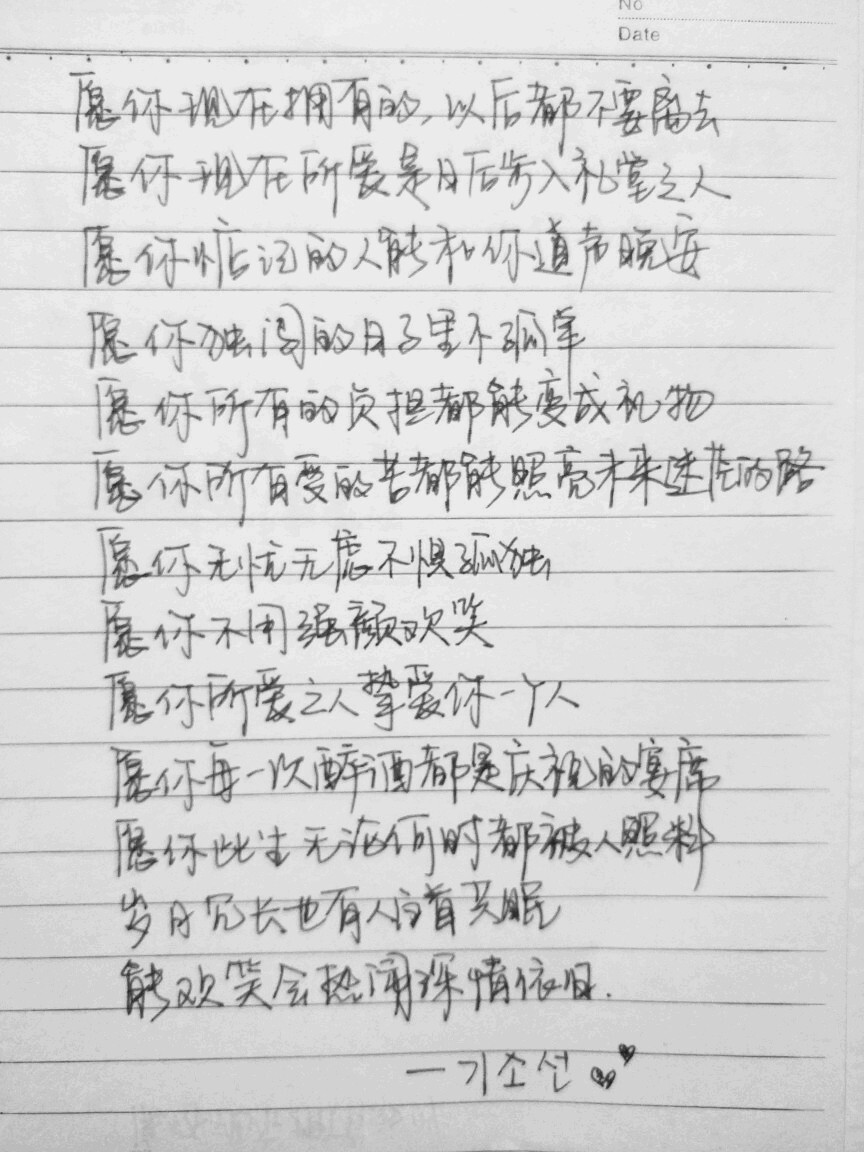 No
Date
愿你现在拥有的,以后都不要离去
愿你现在所爱是日后步入礼堂之人
愿你惦记的人能和你道声晚安
愿你独闯的日子里不孤单
愿你所有的负担都能变成礼物
愿你所有受的苦都能照亮未来迷茫的路
愿你无忧无虑不惧孤独
愿你不用强颜欢笑
愿你所爱之人挚爱你一个人
愿你每一次醉酒都是庆祝的宴席
愿你此生无论何时都被人照料
岁月冗长也有人白首共眠
能欢笑会热闹深情依旧.
—기소선